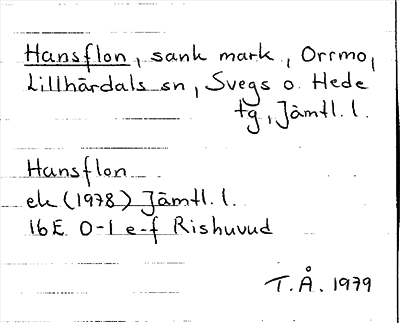 Hansflon, sank mark, Orrmo,
Lillhärdals sn, Svegs o. Hede
tg, Jämtl. l.
Hansflon
ek (1978) Jämtl. l.
16E 0-1 e-f Rishuvud
T.Å. 1979